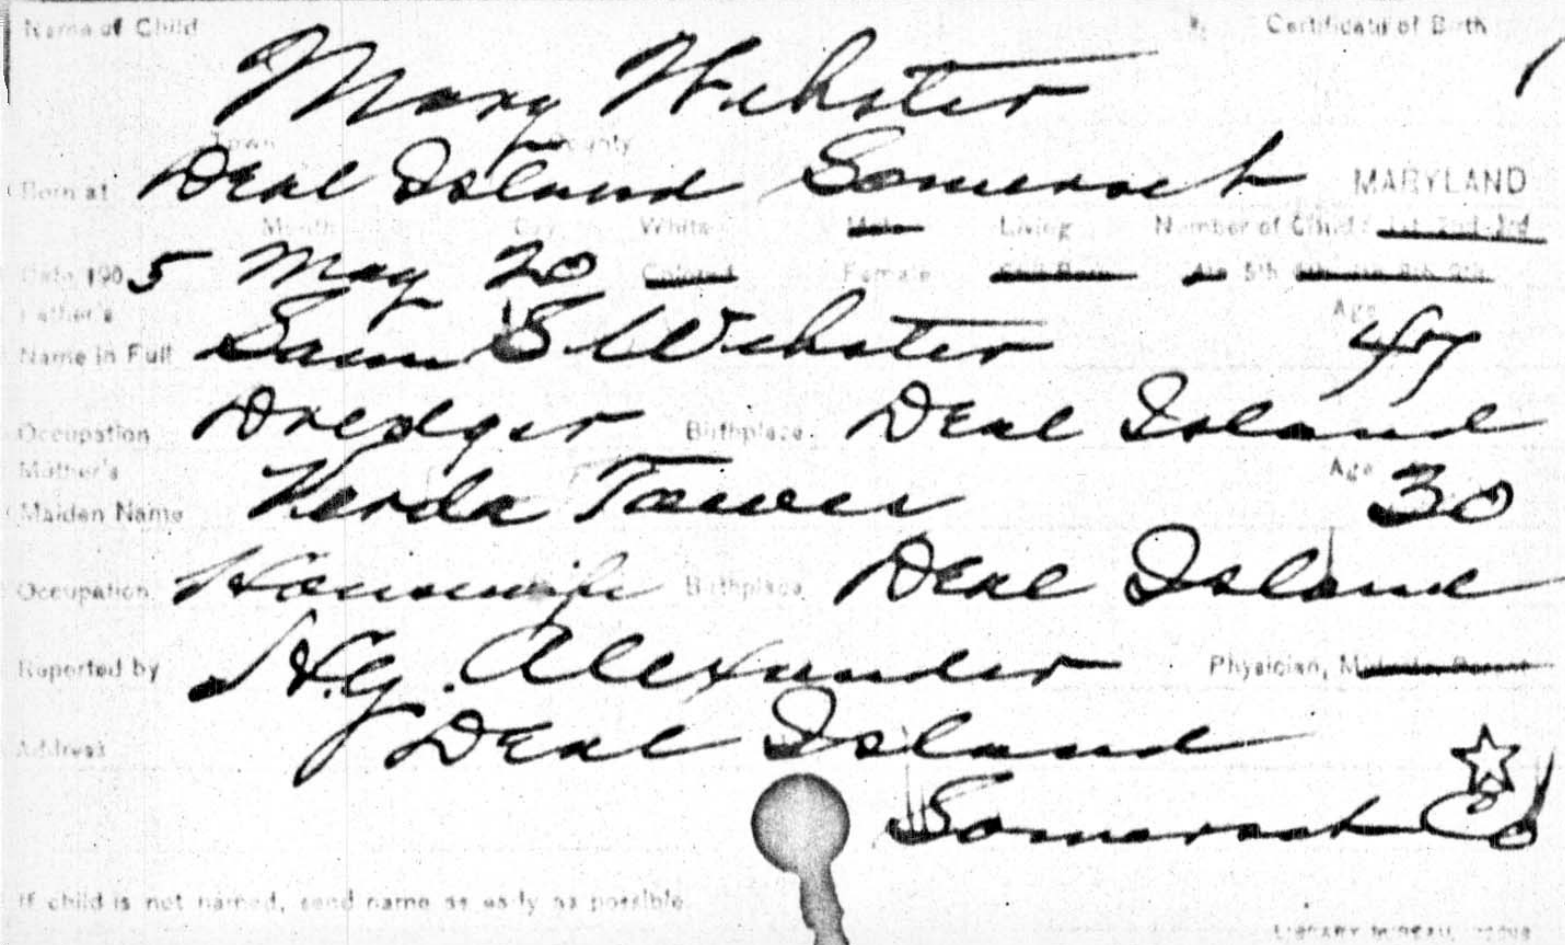 Name of Child Certificate of Birth
Mary Webster
Town County
Born at Deal Island Somerset MARYLAND
Month Day White Male Living Number of Child: 1st 2nd 3rd
Date 190 5 May 20 Colored Female Still Born 4th 5th 6th 7th 8th 9th
Father's Age
Name in Full Sam S Webster 47
Occupation Dredger Birthplace Deal Island
Mother's Age
Maiden Name 30
Occupation Housewife Birthplace Deal Island
Reported by H.G. Alexander Physician, Midwife, Parent
Address Deal Island
Somerset Co
If child is not named, send name as early as possible
LIBRARY BUREAU